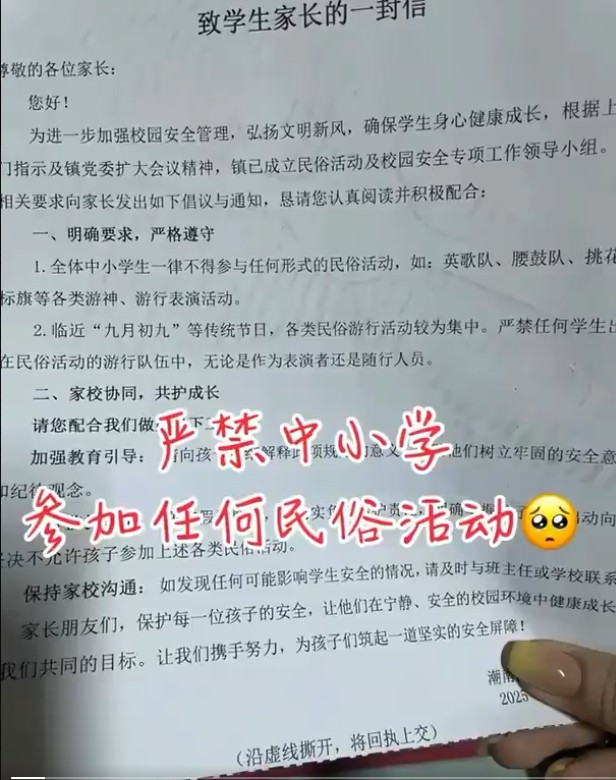 致学生家长的一封信
尊敬的各位家长：
您好！
为进一步加强校园安全管理，弘扬文明新风，确保学生身心健康成长，根据上
门指示及镇党委扩大会议精神，镇已成立民俗活动及校园安全专项工作领导小组。
相关要求向家长发出如下倡议与通知，恳请您认真阅读并积极配合：
一、明确要求，严格遵守
1.全体中小学生一律不得参与任何形式的民俗活动，如：英歌队、腰鼓队、挑花
标旗等各类游神、游行表演活动。
2.临近“九月初九”等传统节日，各类民俗游行活动较为集中。严禁任何学生出
在民俗活动的游行队伍中，无论是作为表演者还是随行人员。
二、家校协同，共护成长
请您配合我们做
严禁中小学
加强教育引导：
向孩
解释
项规
意义
他们树立牢固的安全意
和纪律观念。
参加任何民俗活动🥺
动向
坚决不允许孩子参加上述各类民俗活动。
保持家校沟通：如发现任何可能影响学生安全的情况，请及时与班主任或学校联系
家长朋友们，保护每一位孩子的安全，让他们在宁静、安全的校园环境中健康成长
我们共同的目标。让我们携手努力，为孩子们筑起一道坚实的安全屏障！
潮南
2025
（沿虚线撕开，将回执上交）